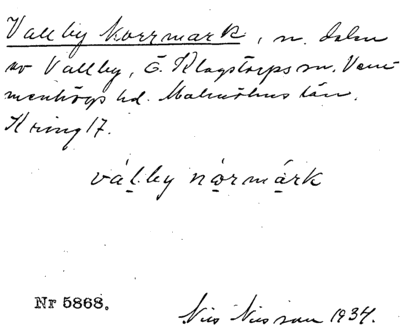 Vallby Norrmark, n. delen
av Vallby, Ö. Klagstorps sn. Vem-
menhögs hd. Malmöhus län.
Kring 17.
vál.by nǫrmárk
Nr 5868.
Nils Nilsson 1934.